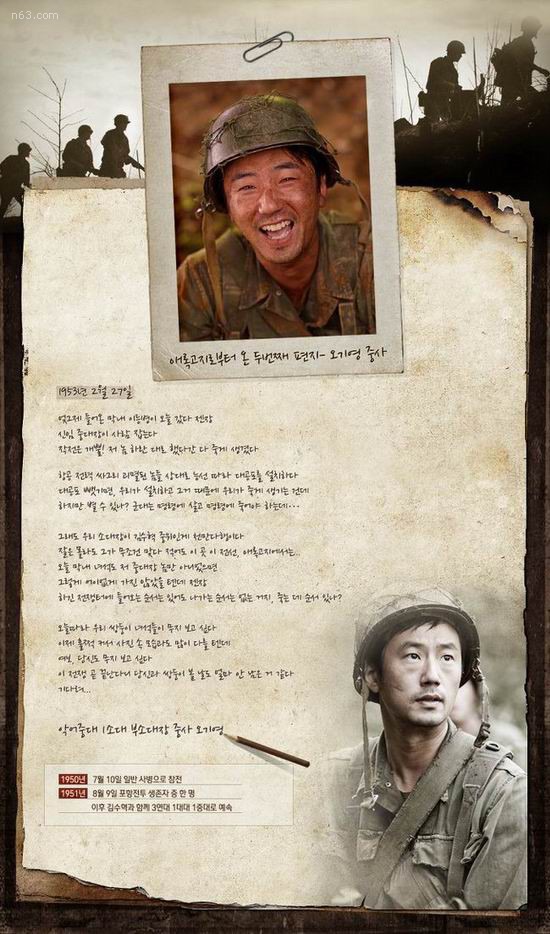 n63.com
애록고지로부터 온 두번째 편지- 오기영 중사
1953년 2월 27일
엊그제 들어온 막내 이등병이 오늘 갔다 젠장
신임 중대장이 사람 잡는다
작전은 개뿔! 저 놈 하란 대로 했다간 다 죽게 생겼다
항공 전력 싸그리 괴멸된 놈들 상대로 능선 따라 대공포를 설치하다
대공포 뺏기면, 우리가 설치하고 그거 때문에 우리가 죽게 생기는 건데
하지만 별 수 있나? 군대는 명령에 살고 명령에 죽어야 하는데...
그래도 우리 소대장이 김수혁 중위인게 천만다행이다
잘은 몰라도 그가 무조건 맞다 적어도 이 곳 이 전선, 애록고지에서는..
오늘 막내 녀석도 저 중대장 놈만 아니었으면
그렇게 어이없게 가진 않았을 텐데 젠장
하긴 전쟁터에 들어오는 순서는 있어도 나가는 순서는 없는 거지, 죽는 데 순서 있나?
오늘따라 우리 쌍둥이 녀석들이 무지 보고 싶다
이제 훌쩍 커서 사진 속 모습과도 많이 다를 텐데
여보, 당신도 무지 보고 싶다
이 전쟁 곧 끝난다니 당신과 쌍둥이 볼 날도 얼마 안 남은 거 같다
기다려...
악어중대 1소대 부소대장 중사 오기영
1950년 7월 10일 일반 사병으로 참전
1951년 8월 9일 포항전투 생존자 중 한 명
이후 김수혁과 함께 3연대 1대대 1중대로 예속